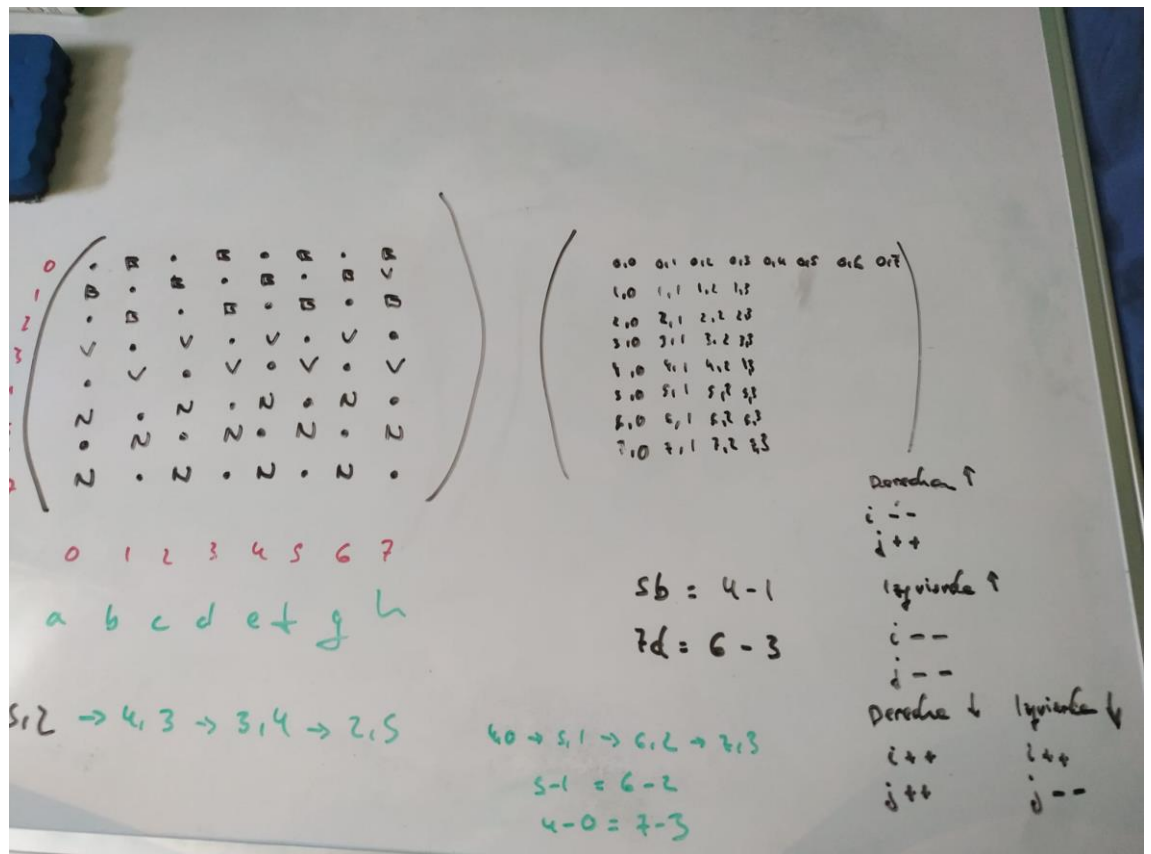 0 . B . B . B . B
1 B . B . B . B V
2 . B . B . B . B
3 V . V . V . V .
. V . V . V . V
N . N . N . N .
. N . N . N . N
N . N . N . N .
0 1 2 3 4 5 6 7
a b c d e f g h
5,2 → 4,3 → 3,4 → 2,5
0,0 0,1 0,2 0,3 0,4 0,5 0,6 0,7
1,0 1,1 1,2 1,3
2,0 2,1 2,2 2,3
3,0 3,1 3,2 3,3
4,0 4,1 4,2 4,3
5,0 5,1 5,2 5,3
6,0 6,1 6,2 6,3
7,0 7,1 7,2 7,3
5b = 4-1
7d = 6-3
4,0 → 5,1 → 6,2 → 7,3
5-1 = 6-2
4-0 = 7-3
Derecha ↑
i--
j++
Izquierda ↑
i--
j--
Derecha ↓ Izquierda ↓
i++ i++
j++ j--